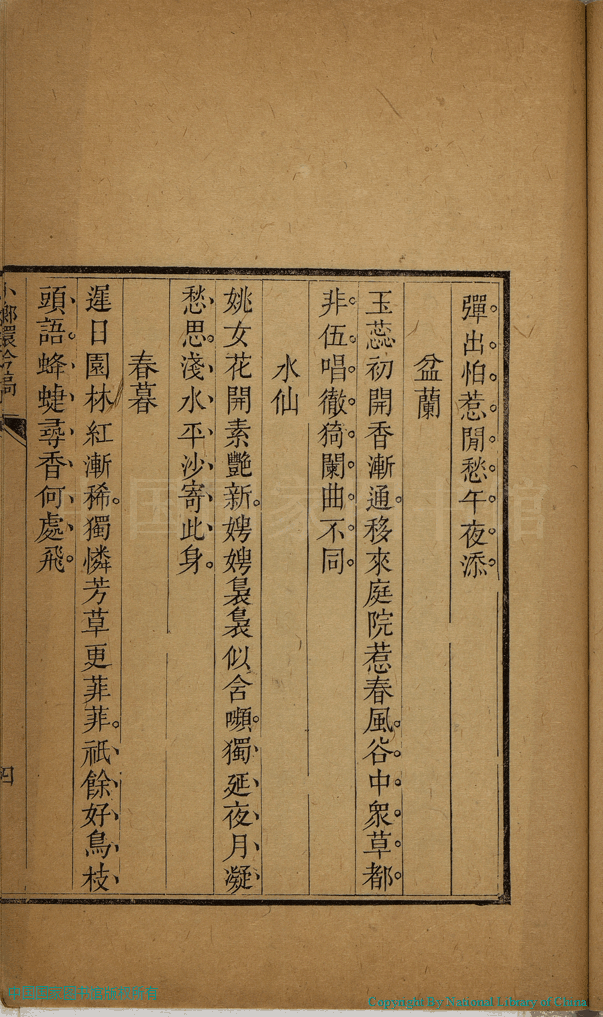 彈出怕惹閒愁午夜添
盆蘭
玉蕊初開香漸通移來庭院惹春風谷中衆草都
非伍唱徹猗蘭曲不同
水仙
姚女花開素艷新娉娉裊裊似含嚬獨延夜月凝
愁思淺水平沙寄此身
春暮
遲日園林紅漸稀獨憐芳草更菲菲祇餘好鳥枝
頭語蜂蜨尋香何處飛
小嫏嬛吟稿
四
Copyright By National Library of China